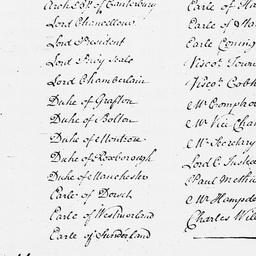 Arch Bp of Canterbury
Lord Chancellour
Lord President
Lord Privy Seale
Lord Chamberlain
Duke of Grafton
Duke of Bolton
Duke of Montrose
Duke of Roxborough
Duke of Manchester
Earle of Dorset
Earle of Westmorland
Earle of Sunderland
Earle of
Earle of
Earle Conings
Viscot. Town
Viscot Cobh
Mr. Comptro
Mr. Vice Cham
Mr. Secretary
Lord C. Justice
Paul Methu
Mr. Hampde
Charles Will